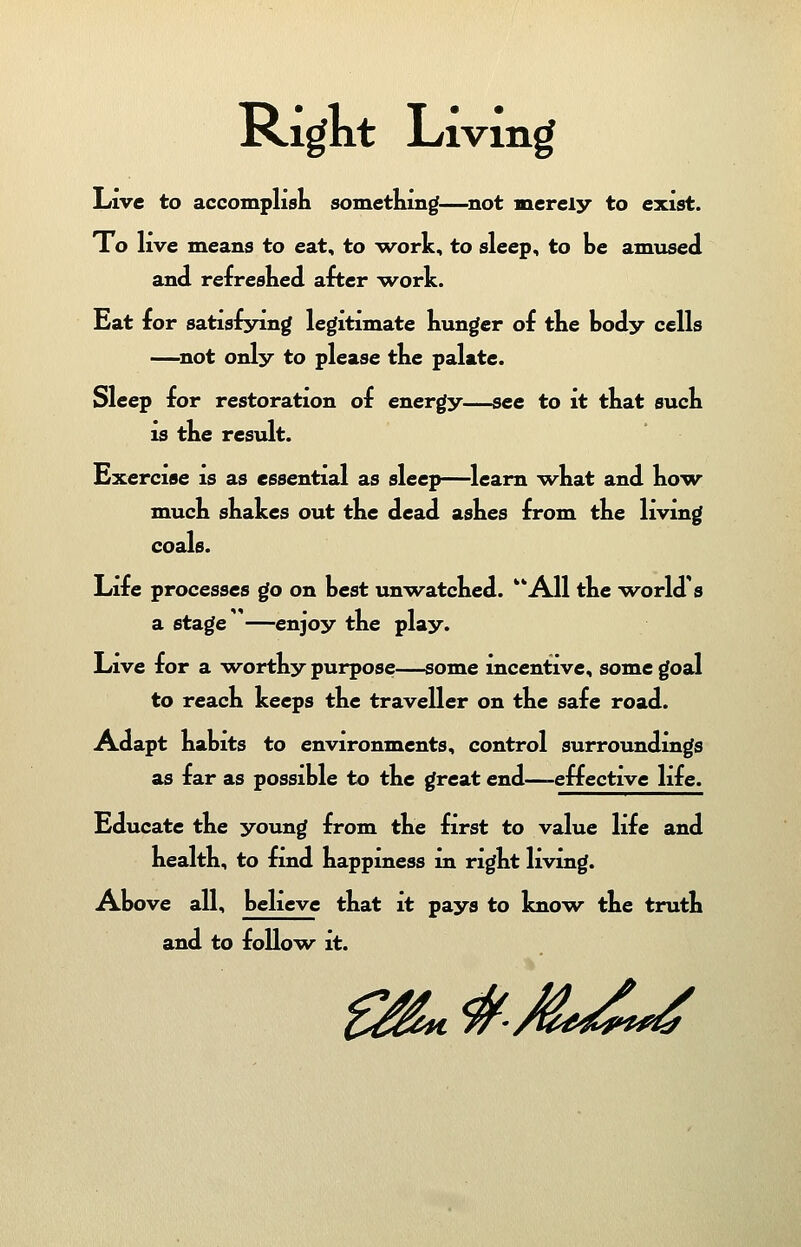 Right Living
Live to accomplish something—not merely to exist.
To live means to eat, to work, to sleep, to be amused
and refreshed after work.
Eat for satisfying legitimate hunger of the body cells
—not only to please the palate.
Sleep for restoration of energy—see to it that such
is the result.
Exercise is as essential as sleep—learn what and how
much shakes out the dead ashes from the living
coals.
Life processes go on best unwatched. "All the world's
a stage"—enjoy the play.
Live for a worthy purpose—some incentive, some goal
to reach keeps the traveller on the safe road.
Adapt habits to environments, control surroundings
as far as possible to the great end—effective life.
Educate the young from the first to value life and
health, to find happiness in right living.
Above all, believe that it pays to know the truth
and to follow it.
Ellen H. Richards